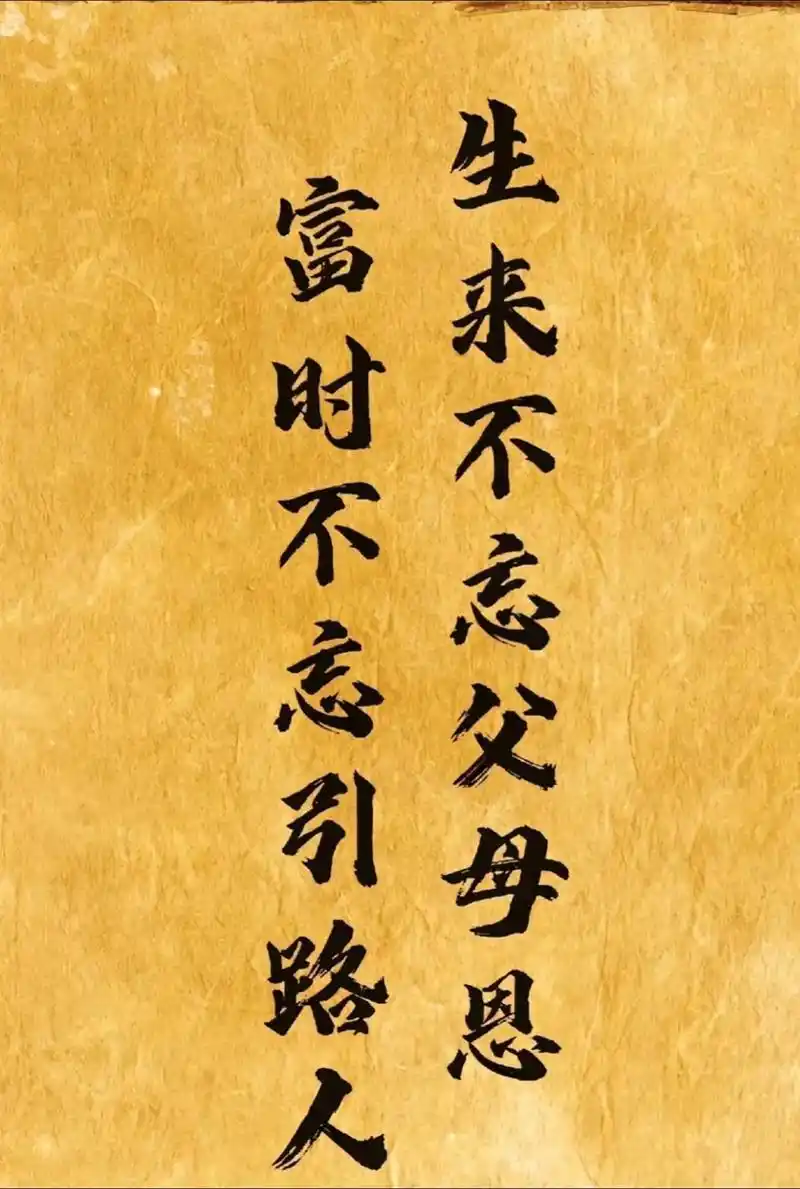 生来不忘父母恩
富时不忘引路人